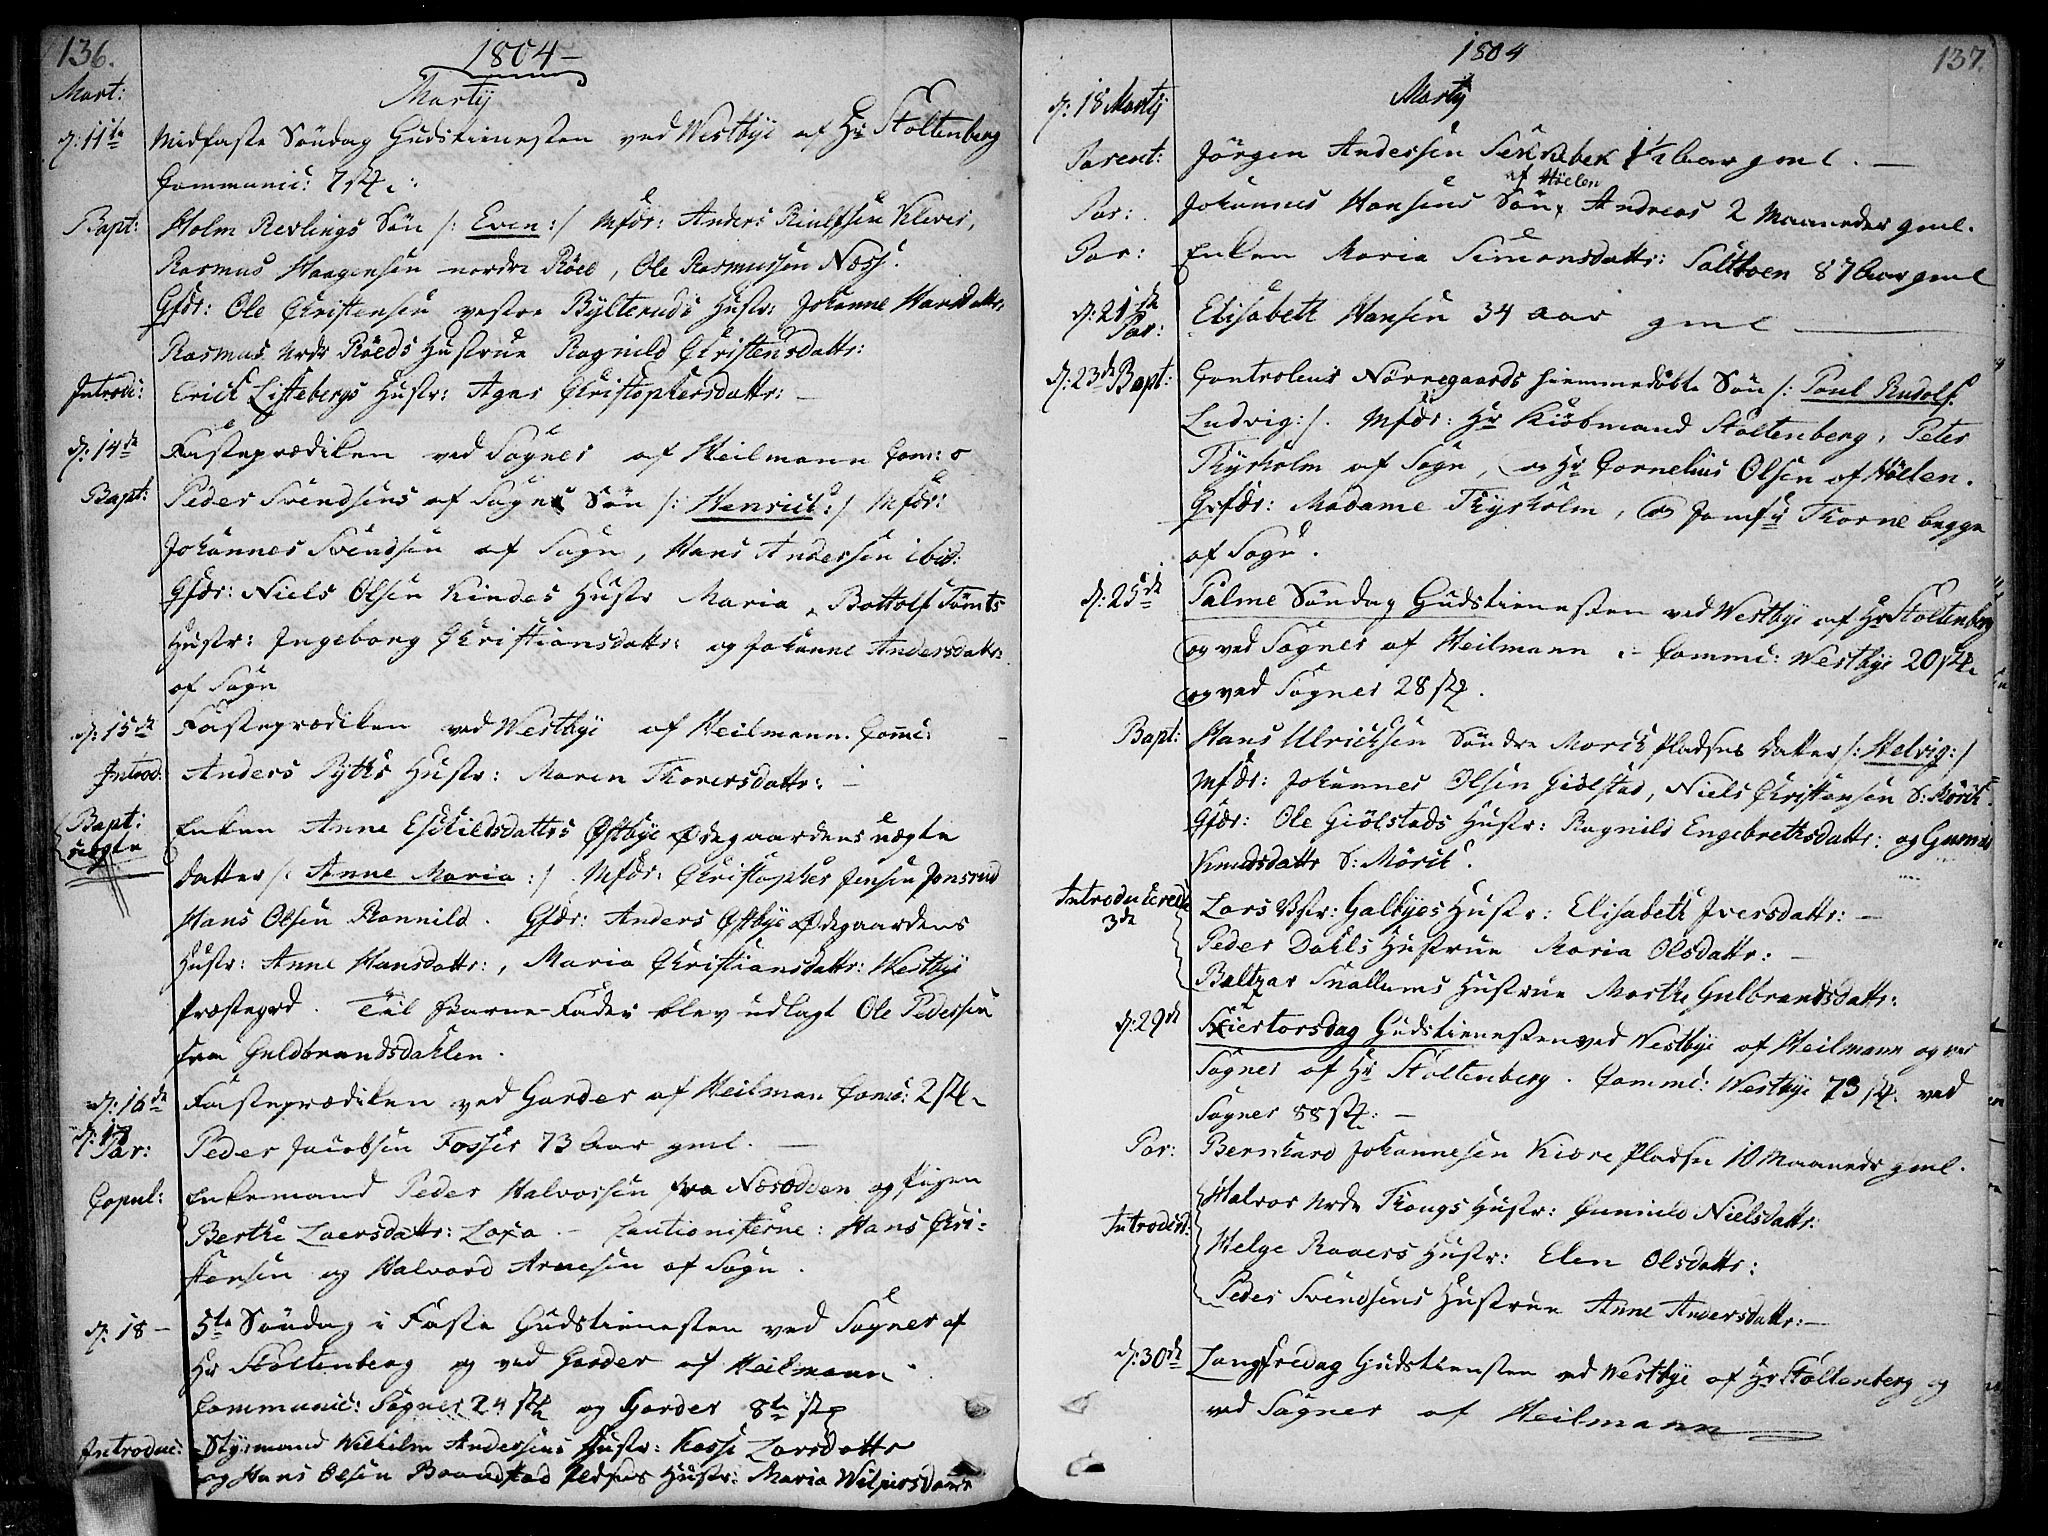 136.
1804 –
Mart:
Martij
d: 11te Midfaste Söndag Gudstienesten ved Westbye af Hr Stoltenberg
Communic: 7 st.
Bapt: Holm Revlings Sön /: Even :/ Mfdr: Anders
Rasmus Haagensen nordre Röed, Ole Rasmussen Næss.
Gfdr: Ole Christensen vestre Bylteruds Hustr: Johanne Hansdattr,
Rasmus Nrdr Röeds Hustrue Ragnild Christensdattr:
Introd: Erick Listebergs Hustr: Agnes Christophersdattr: –
d: 14de Fasteprædiken ved Sogner af Heilmann Com: 0
Bapt: Peder Svendsens af Sogn Sön /: Henrich :/ Mfdr:
Johannes Svendsen af Sogn, Hans Andersen ibid:
Gfdr: Niels Olsen Kindes Hustr Maria, Bottolf Tömts
Hustr: Ingeborg Christiansdattr: og Johanne Andersdattr:
af Sogn
d: 15de Fasteprædiken ved Westbye af Heilmann. Comc: –
Introd: Anders Pyths Hustr: Maren Thorersdattr: –
Bapt: Enken Anne Eschildsdatters Østbye Ødegaardens uægte
uægte Datter /: Anne Maria :/ Mfdr: Christopher Jensen Jonsrud
Hans Olsen Ronnild. Gfdr: Anders Østbye Ødegaardens
Hustr: Anne Hansdattr:, Maria Christiansdattr: Westbye
Præstegrd. Til Barne-Fader blev udlagt Ole Pedersen
fra Guldbrandsdahlen.
d: 16de Fasteprædiken ved Garder af Heilman Comc: 2 st.
d: 17
Par: Peder Jacobsen Fosser 73 Aar gml. –
Copul: Enkemand Peder Halvorsen fra Næsodden og Pigen
Berthe Laersdattr: Laxa. – Cautionisterne: Hans Chri-
stensen og Halvord Arnesen af Sogn.
d: 18 – 5te Söndag i Faste Gudstienesten ved Sogner af
Hr Stoltenberg og ved Garder af Heilmann
Communic: Sogner 24 st. og Garder 8te st.
Introduc: Styrmand Wilhelm Andersens Hustr: Larsdattr
og Hans Olsen Hustr: Maria
1804
137.
d: 18 Martij
Martij
Parent: Jörgen Andersen 1½ Aar gml. –
af Höelen
Par: Johannes Hansens Sön, Andreas 2 Maaneder gml.
Par: Enken Maria Simonsdattr: Saltboen 87 Aar gml
d: 21de
Par: Elisabeth Hansen 34 Aar gml
d: 23de Bapt: Controleur Nörregaards hiemmedöbte Sön /: Paul Rudolf
Ludvig :/. Mfdr: Hr Kiöbmand Stoltenberg, Peter
Thysholm af Sogn, og Hr Cornelius Olsen af Höelen.
Gfdr: Madame Thysholm, og Jomfu Thorne begge
af Sogn.
d: 25de Palme Söndag Gudstienesten ved Westbye af Hr Stoltenberg
og ved Sogner af Heilmann. – Commc: Westbye 20 st.
og ved Sogner 28 st.
Bapt: Hans Ulrichsen Söndre Mörch Pladsens Datter /: Helvig :/
Mfdr: Johannes Olsen Giölstad, Niels Christensen S: Mörch.
Gfdr: Ole Giölstads Hustr: Ragnild Engebrethsdattr: og
Knudsdattr S: Mörch.
Introducerede
3de
Lars Vstr: Galbyes Hustr: Elisabeth Iversdattr: –
Peder Dahls Hustrue Maria Olsdattr: –
Baltzar Snallums Hustrue Marthe Gulbrandsdattr:
d: 29de Skiertorsdag Gudstienesten ved Westbye af Heilmann og ved
Sogner af Hr Stoltenberg. Commc: Westbye 73 st. ved
Sogner 88 st: –
Par: Bernhard Johannesen Kiære Pladsen 10 Maaneder gml.
Halvor Nrdr Thougs Hustr: Gunild Nielsdattr:
Introducd: Helge Raaers Hustr: Elen Olsdattr:
Peder Svendsens Hustrue Anne Andersdattr: –
d: 30de Langfredag Gudstienesten ved Westbye af Hr Stoltenberg og
ved Sogner af Heilmann